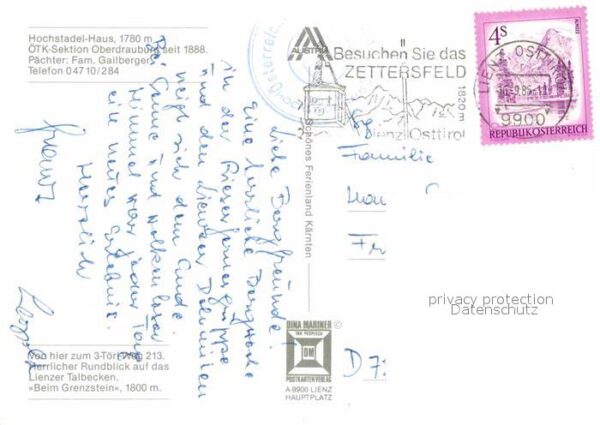 Hochstadel-Haus, 1780 m
ÖTK-Sektion Oberdrauburg seit 1888.
Pächter: Fam. Gailberger
Telefon 0 47 10 / 284
Liebe Bergfreunde!
Eine herrliche Bergwoche
in der Riesenfernergruppe
und den Lienzer Dolomiten
neigt sich dem Ende.
Bei Sonne und wolkenlosem
Himmel war jeder Tag
ein neues Erlebnis.
Herzlich
Von hier zum 3-Törl-Weg 213.
Herrlicher Rundblick auf das
Lienzer Talbecken.
»Beim Grenzstein«, 1800 m.
Schönes Ferienland Kärnten
DINA MARINER
DM
POSTKARTENVERLAG
A-9900 LIENZ
HAUPTPLATZ
AUSTRIA
Besuchen Sie das
ZETTERSFELD
1820 m
Lienz Osttirol
LIENZ, OSTTIROL
9900
4S
REPUBLIK ÖSTERREICH
Familie
privacy protection
Datenschutz